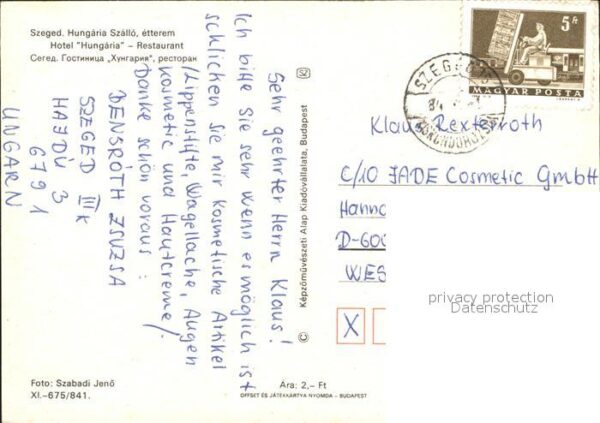 Szeged. Hungária Szálló, étterem
Hotel "Hungária" – Restaurant
Сегед. Гостиница „Хунгария", ресторан
Sehr geehrter Herrn Klaus!
Ich bitte Sie sehr wenn es möglich ist
schicken sie mir kosmetische Artikel
/Lippenstifte, Wagellache, Augen
kosmetic und Hautcreme/.
Danke schön voraus:
BENSRÓTH ZSUZSA
SZEGED III k
HAJDÚ 3
6791
UNGARN
Foto: Szabadi Jenő
XI.–675/841.
© Képzőművészeti Alap Kiadóvállalata, Budapest
Ára: 2,– Ft
OFFSET ÉS JÁTÉKKÁRTYA NYOMDA – BUDAPEST
5 Ft
MAGYAR POSTA
SZEGED
84
Klaus Rexteproth
C/10 JADE Cosmetic GmbH
Hanno
D-600
WES
privacy protection
Datenschutz
X